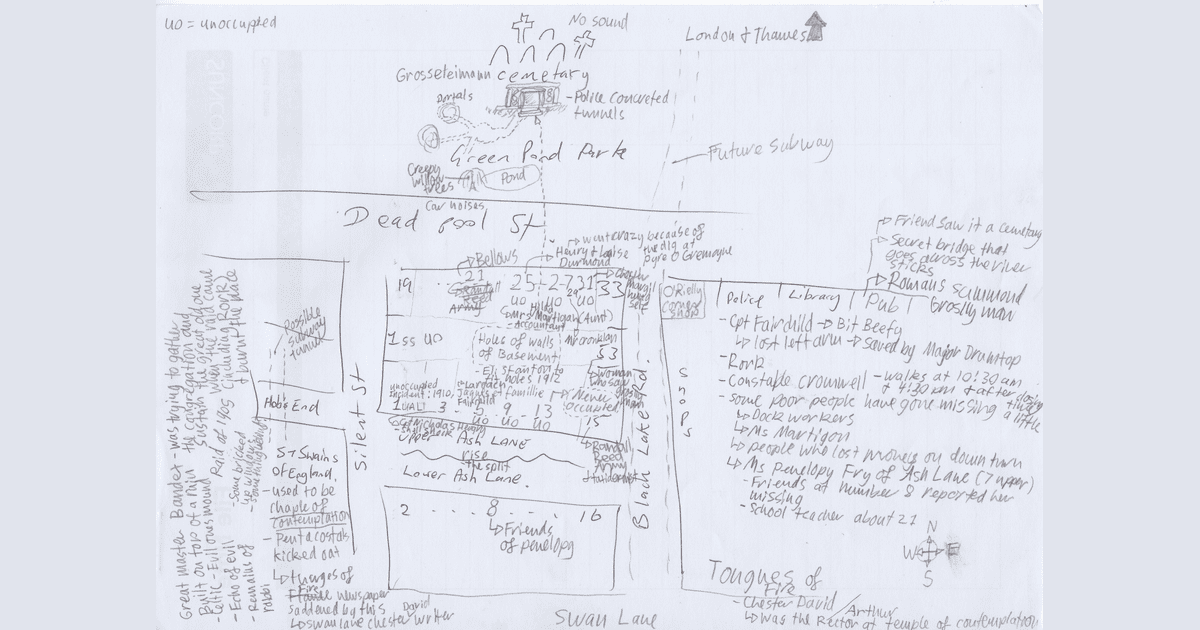 UO = unoccupted
No sound
London & Thames
Grosseteimann cemetary
Portals
- Police concreted
tunnels
Green Pond Park
Future subway
Creepy
willow
trees
Pond
Car noises
Dead pool St
went crazy because of
the dig at
pyre O Gremoyne
Bellows
Henry & Louise
Durmond
19 . . 21 25 - 27 31 33
Reed
Army
UO UO UO
Mrs Martigan (Aunt)
- Accountant
Friend saw it a cemetary
Secret bridge that
goes across the river
sticks
Romans Summond
O'Rielly
corner
shop
Police
Library
Pub
Grosily man
- Cpt Fairchild → Bit Beefy
lost left arm → saved by Major Drumtop
- Rork
- Constable cromwell - walks at 10:30 am
& 4:30 & after closing
time
- some poor people have gone missing a little
Dock workers
Ms Martigon
people who lost money on down turn
Ms penelopy Fry of Ash Lane (7 upper)
- Friends at number 8 reported her
missing
- School teacher about 21
1ss UO
Holes of walls
of Basement
- Eli Stanton to
fill holes 1912
Mr Cronklan
53
woman
who saw
grosly
man
unoccupied
incident: 1910
Familie
Never
occupied
3 - 5 9 - 13 15
UO UO UO
Upper Ash LANE
rise
the split
Lower Ash Lane.
Randall
Reed
Army
2 . . . 8 . . . 16
Friends
of penelopy
Silent St
Black Lake Rd.
Shops
Possible
subway
tunnel
Hob's End
ST Swains
of England.
- used to be
chaple of
contemplation
- Pentacostals
kicked out
Tounges of
Fire newspaper
saddened by this
swan lane chester David writer
Great master Bander - was trying to gather
the congragation and
sustain the great old one
Built on top of a ruin
- Celtic - Evil ones mound
- Echo of evil
- Remains of
rabbi
Raid of 1905 when the mid came
(including Rork
& burnt the place
- Some bricked
up
N
W E
S
Tougues of
Fire
- Chester David / Arthur
Was the Rector at temple of contemplation
Swan Lane